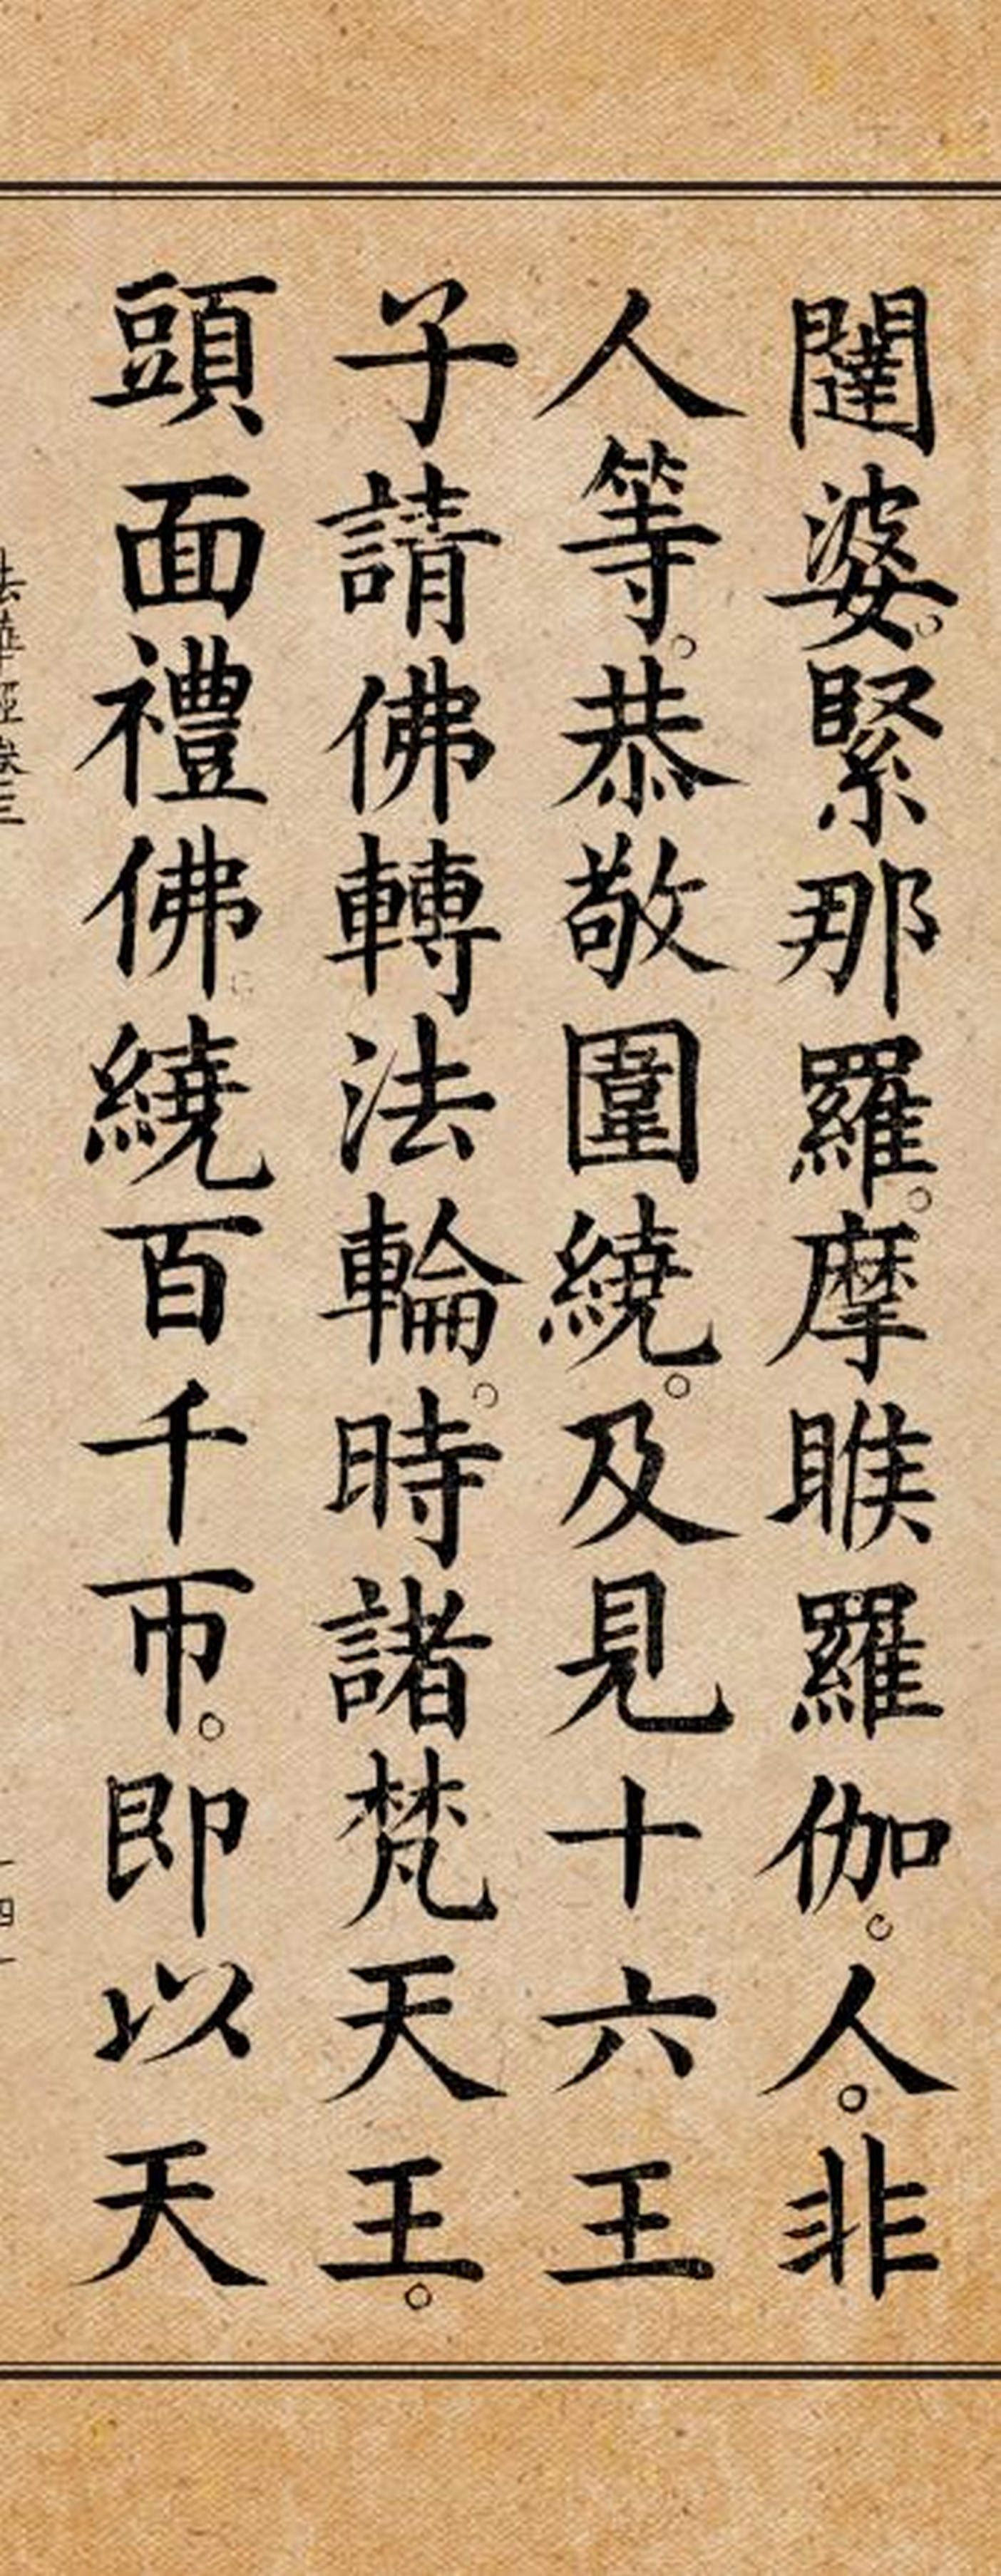 闥婆。緊那羅。摩睺羅伽。人。非
人等。恭敬圍繞。及見十六王
子請佛轉法輪。時諸梵天王。
頭面禮佛。繞百千帀。即以天
法華經卷三